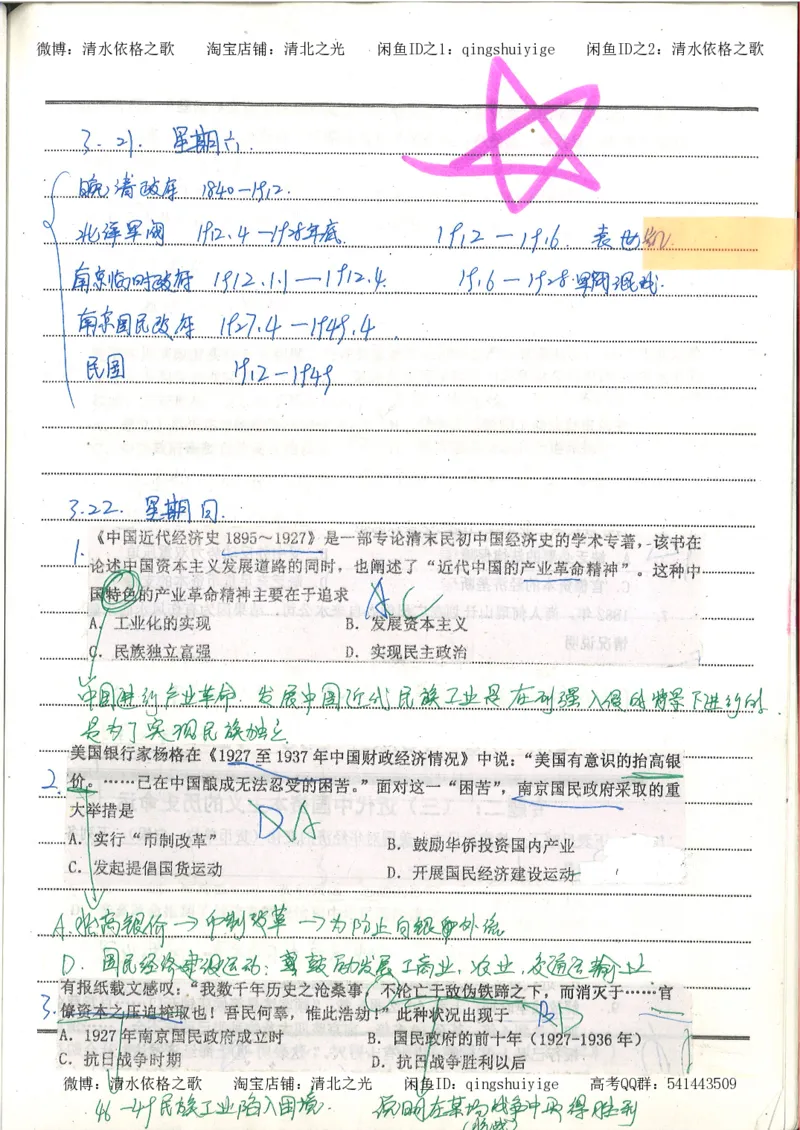 微博：清水依格之歌 淘宝店铺：清北之光 闲鱼ID之1：qingshuiyige 闲鱼ID之2：清水依格之歌
3.21. 星期六.
晚清政府 1840—1912.
北洋军阀 1912.4—1928年底. 1912—1916. 袁世凯.
南京临时政府 1912.1.1—1912.4. 1916—1928.军阀混战.
南京国民政府 1927.4—1949.4.
民国 1912—1949
3.22. 星期日.
1. 《中国近代经济史 1895～1927》是一部专论清末民初中国经济史的学术专著，该书在
论述中国资本主义发展道路的同时，也阐述了“近代中国的产业革命精神”。这种中
国特色的产业革命精神主要在于追求 A C
A．工业化的实现 B．发展资本主义
C．民族独立富强 D．实现民主政治
中国进行产业革命，发展中国近代民族工业是在列强入侵的背景下进行的
是为了实现民族独立
美国银行家杨格在《1927 至 1937 年中国财政经济情况》中说：“美国有意识的抬高银
2. 价。……已在中国酿成无法忍受的困苦。”面对这一“困苦”，南京国民政府采取的重
大举措是 D A
A．实行“币制改革” B．鼓励华侨投资国内产业
C．发起提倡国货运动 D．开展国民经济建设运动
A.抬高银价→币制改革→为防止白银外流
D. 国民经济建设运动：鼓励发展工商业，农业，交通运输业
有报纸载文感叹：“我数千年历史之沧桑事，不沦亡于敌伪铁蹄之下，而消灭于……官
3. 僚资本之压迫榨取也！吾民何辜，惟此浩劫！”此种状况出现于 B D
A．1927 年南京国民政府成立时 B．国民政府的前十年（1927-1936 年）
C．抗日战争时期 D．抗日战争胜利以后
微博：清水依格之歌 淘宝店铺：清北之光 闲鱼ID：qingshuiyige 高考QQ群：541443509
46—49民族工业陷入困境. 说明在某场战争中取得胜利
(抗战)